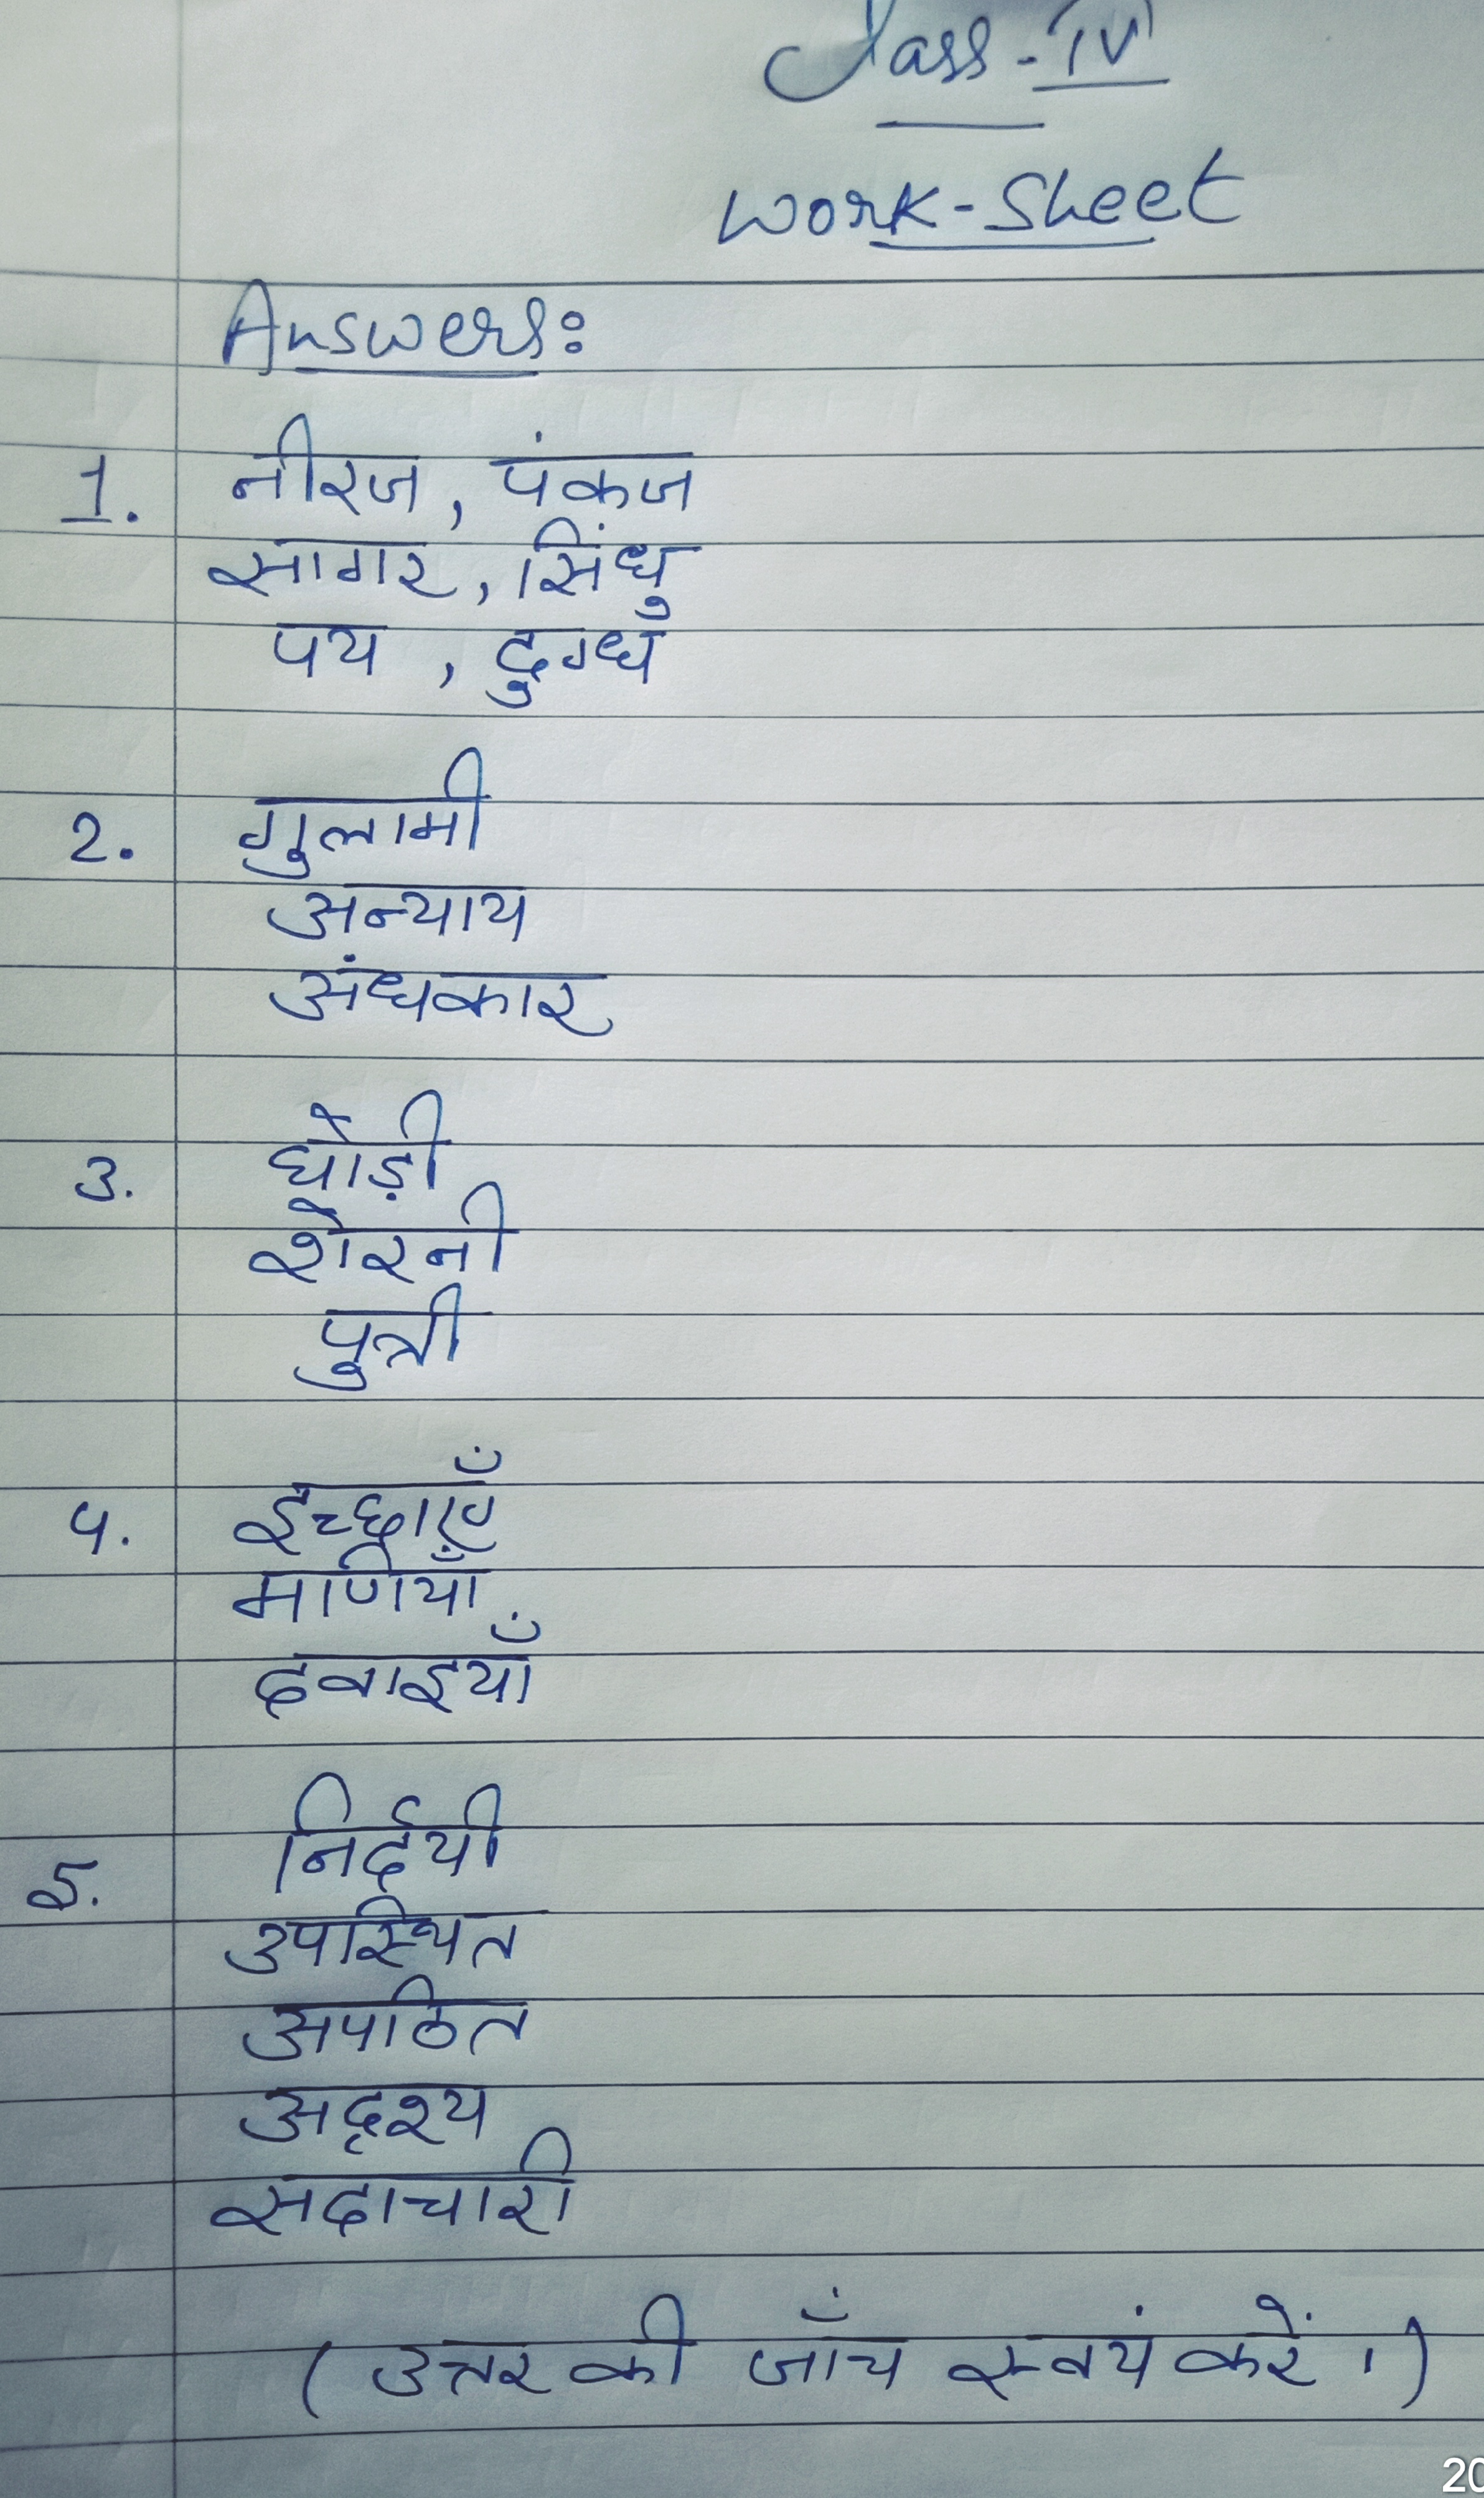 Class - IV
Work-Sheet
Answers:
1. नीरज, पंकज
सागर, सिंधु
पय, दुग्ध
2. गुलामी
अन्याय
अंधकार
3. घोड़ी
शेरनी
पुत्री
4. इच्छाएँ
मणियाँ
दवाइयाँ
5. निर्दयी
उपस्थित
अपठित
अदृश्य
सदाचारी
(उत्तर की जाँच स्वयं करें।)
20